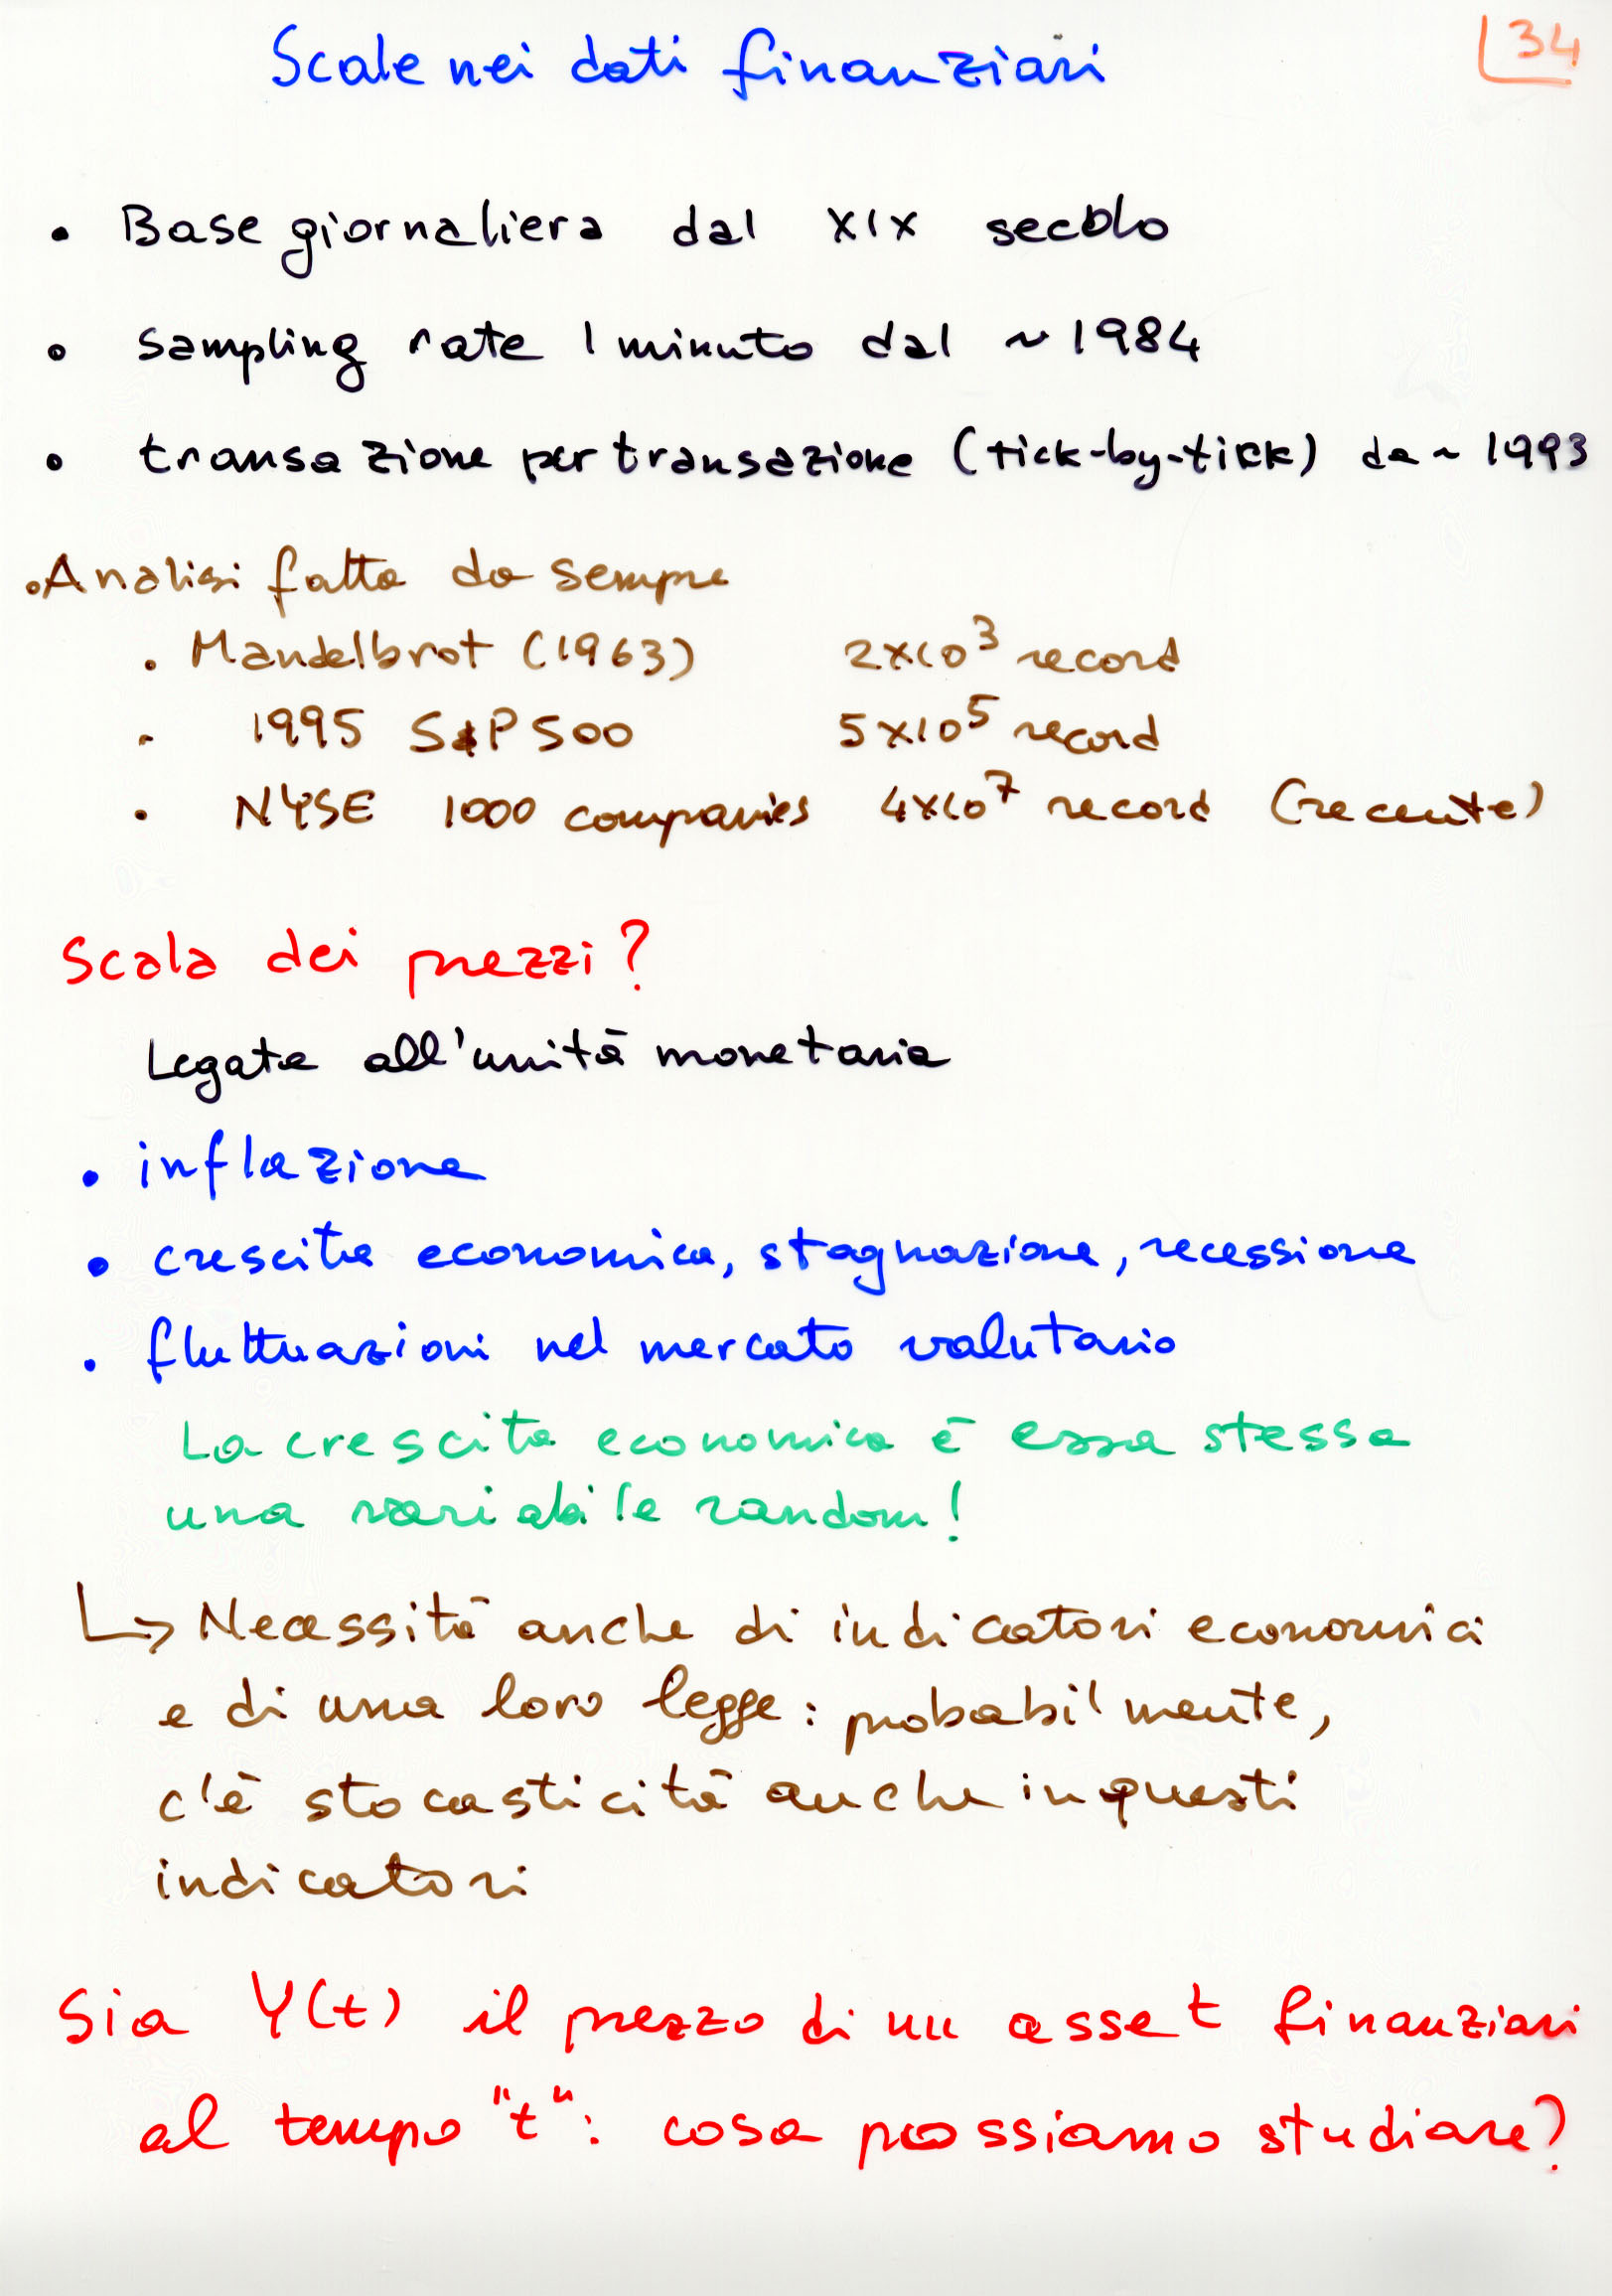 Scale nei dati finanziari
34
• Base giornaliera dal XIX secolo
• sampling rate 1 minuto dal ~ 1984
• transazione per transazione (tick-by-tick) da ~ 1993
• Analisi fatta da sempre
• Mandelbrot (1963) 2x10³ record
• 1995 S&P 500 5x10⁵ record
• NYSE 1000 companies 4x10⁷ record (recente)
Scala dei prezzi?
Legata all'unità monetaria
• inflazione
• crescita economica, stagnazione, recessione
• fluttuazioni nel mercato valutario
La crescita economica è essa stessa
una variabile random!
↳ Necessità anche di indicatori economici
e di una loro legge: probabilmente,
c'è stocasticità anche in questi
indicatori
Sia Y(t) il prezzo di un asset finanziari
al tempo "t": cosa possiamo studiare?